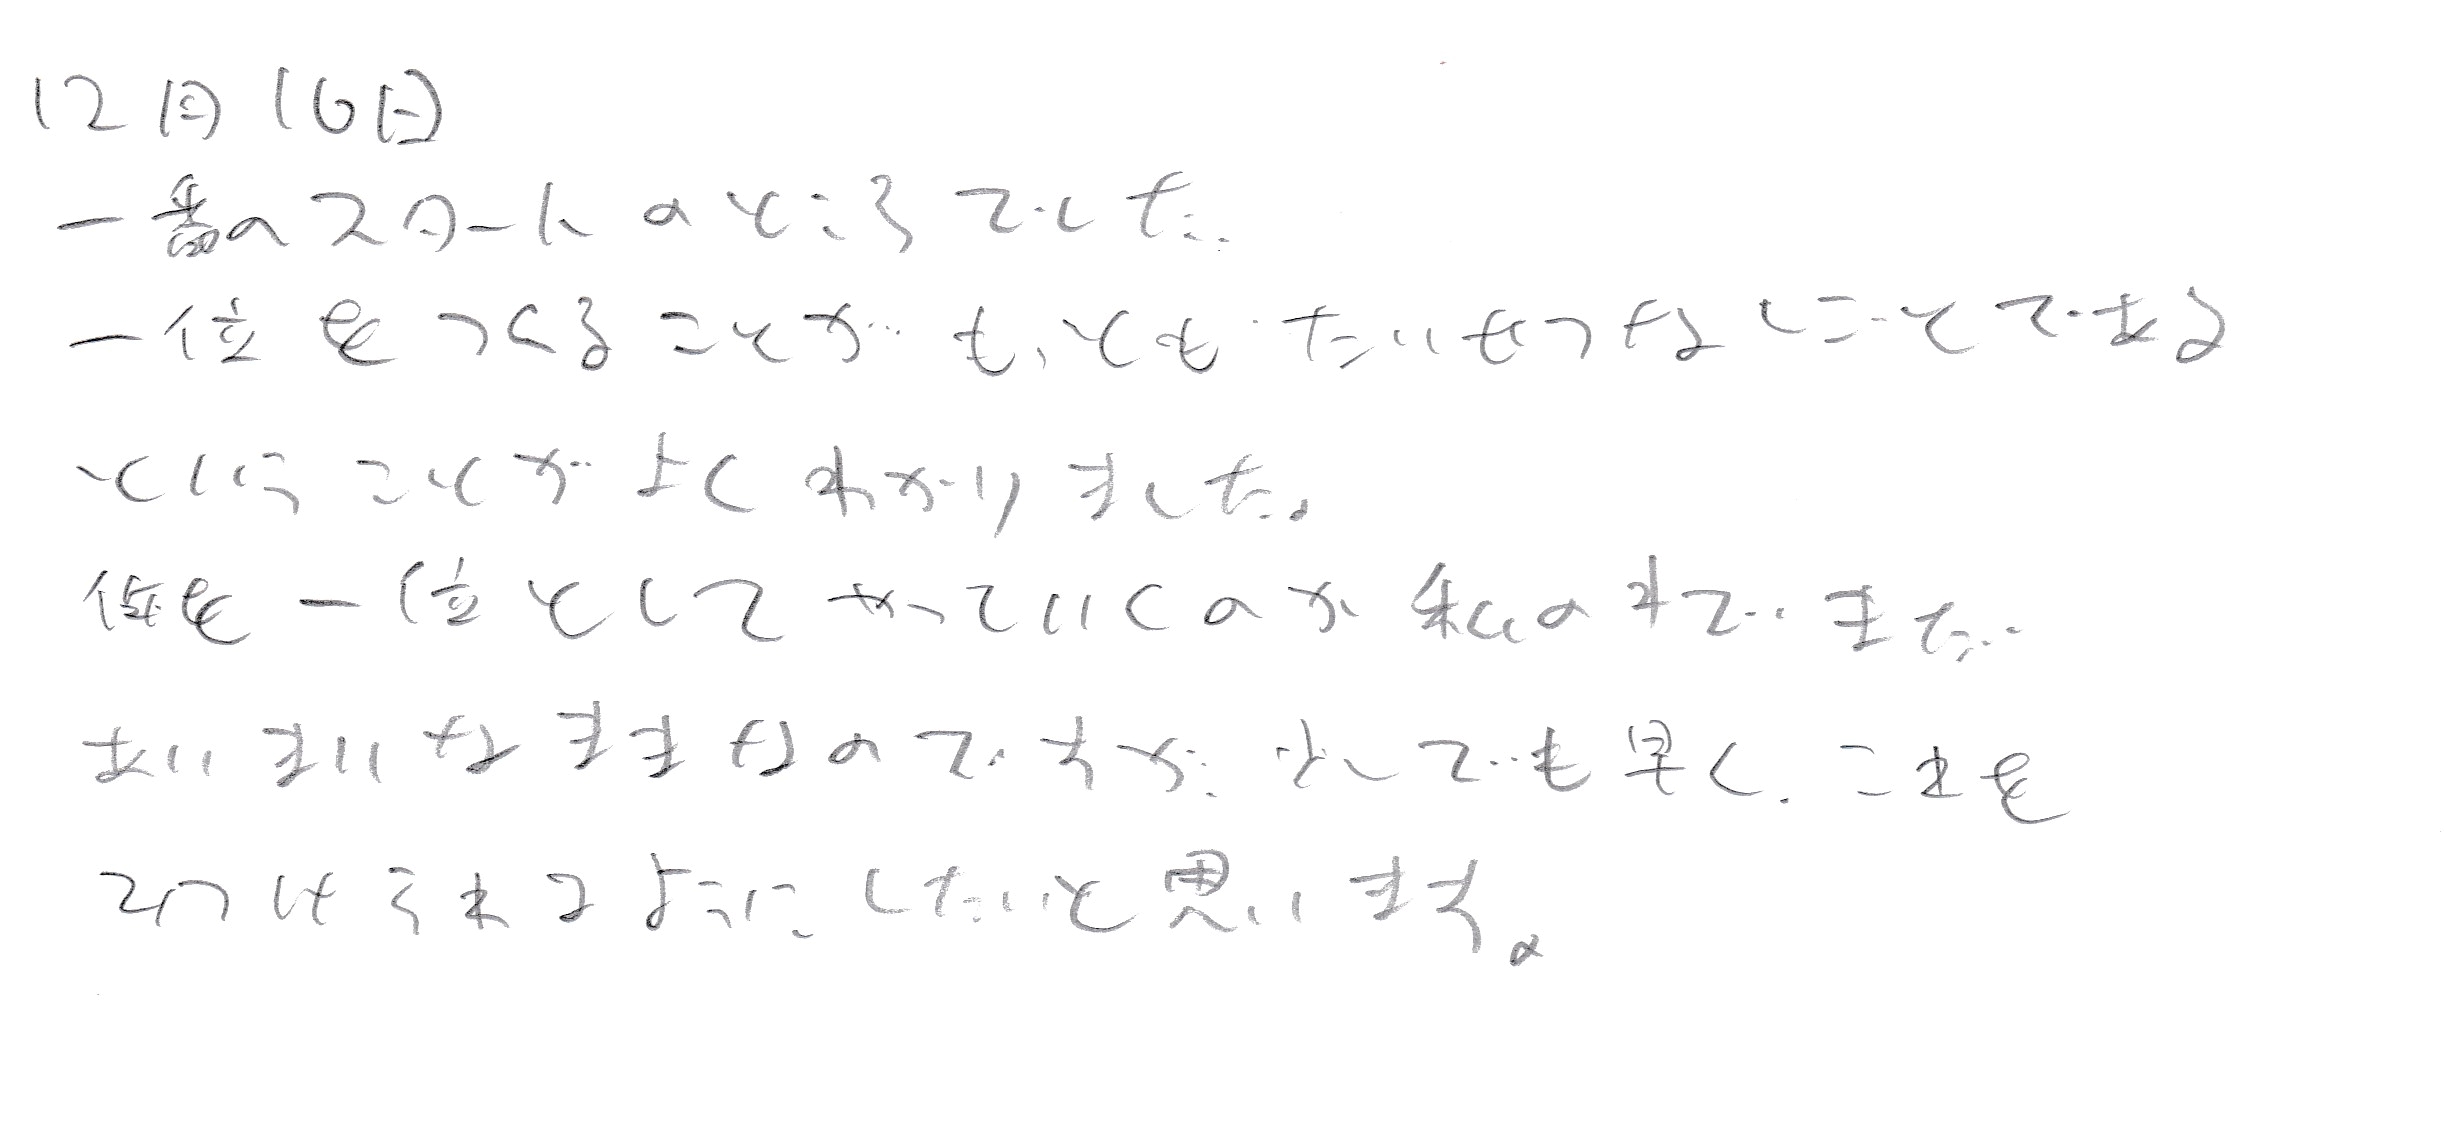 12月16日
一番のスタートのところでした。
一位をつくることがもっともたいせつなしごとである
ということがよくわかりました。
を一位としてやっていくのか私の中でいまだ
あいまいなままなのですが少しでも早く、これを
みつけられるようにしたいと思います。